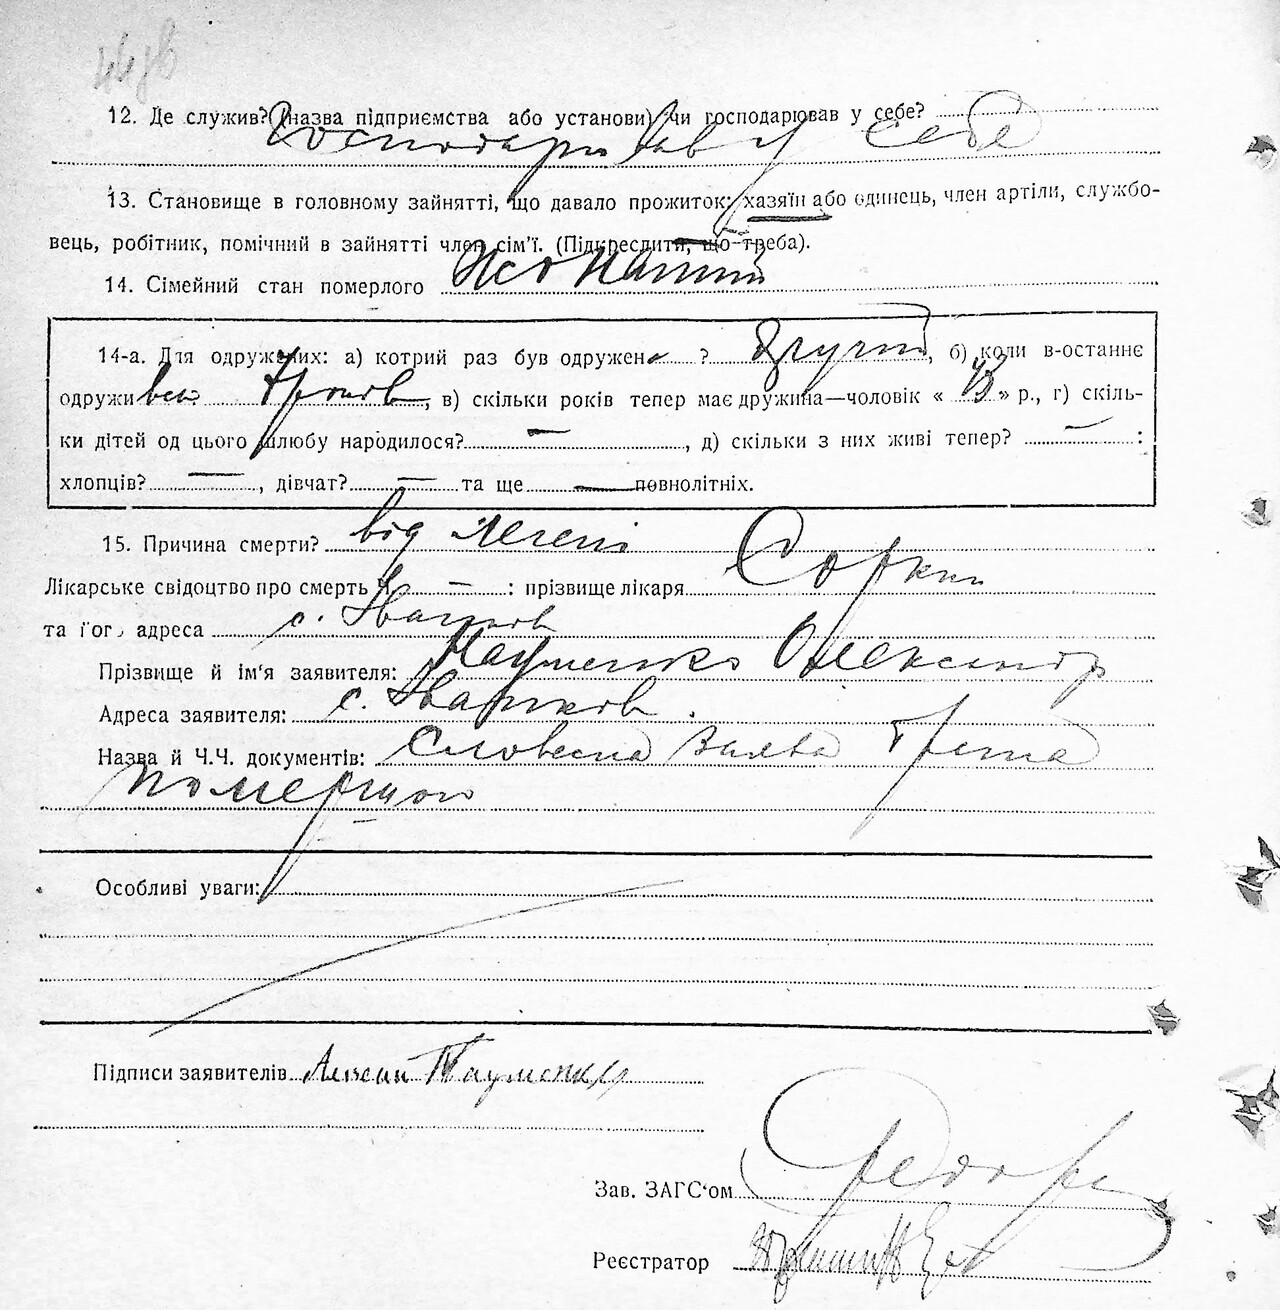 12. Де служив? (назва підприємства або установи) чи господарював у себе?
Господарював у себе
13. Становище в головному зайнятті, що давало прожиток: хазяїн або одинець, член артіли, службо-
вець, робітник, помічний в зайнятті член сім'ї. (Підкреслити, що треба).
14. Сімейний стан померлого
14-а. Для одружених: а) котрий раз був одружен ? другий, б) коли в-останнє
одружи в) скільки років тепер має дружина—чоловік « » р., г) скіль-
ки дітей од цього шлюбу народилося? — , д) скільки з них живі тепер? — :
хлопців? — , дівчат? — та ще — повнолітніх.
15. Причина смерти? від легені
Лікарське свідоцтво про смерть Ч. — : прізвище лікаря Соркин
та його адреса с. Іванков
Прізвище й ім'я заявителя: Науменко Олександр
Адреса заявителя: с. Іванков.
Назва й Ч.Ч. документів: Словесна заява брата
помершого
Особливі уваги:
Підписи заявителів Науменко
Зав. ЗАГС'ом
Реєстратор